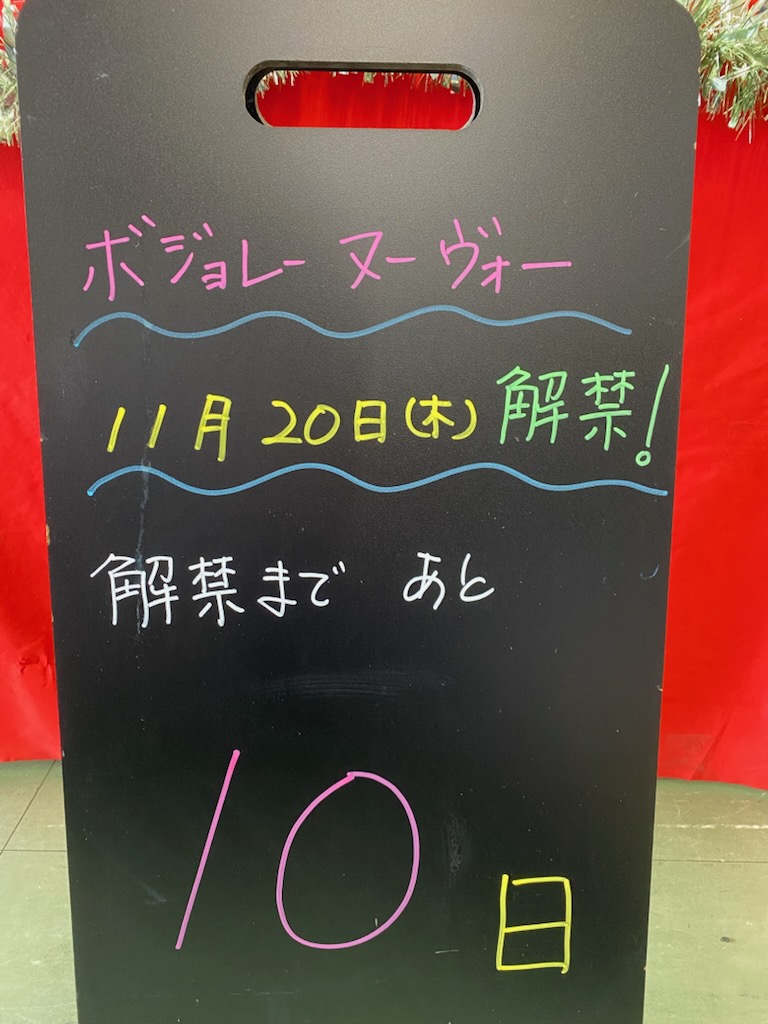 ボジョレー ヌーヴォー
11月20日(木) 解禁!
解禁まで あと
10日